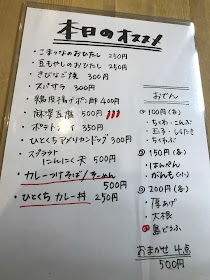 本日のオススメ
・こまつなのおひたし 250円
・豆もやしのおひたし 250円
・きびなご焼 300円
・スパサラ 300円
・鶏皮揚げポン酢 400円
・麻婆豆腐 500円
・ポテトフライ 350円
・ひとくちアメリカンドッグ 300円
・スプラウト
にんにく天 500円
・カレーつけそば/ラーメン
500円
・ひとくちカレー丼 250円
おでん
◎100円(各)
・ちくわ・こんぶ
・玉子・しらたき
・ちくわぶ
◎150円(各)
・はんぺん
・がんも(小)
◎200円(各)
・厚あげ
・大根
・島どうふ
おまかせ4点
500円